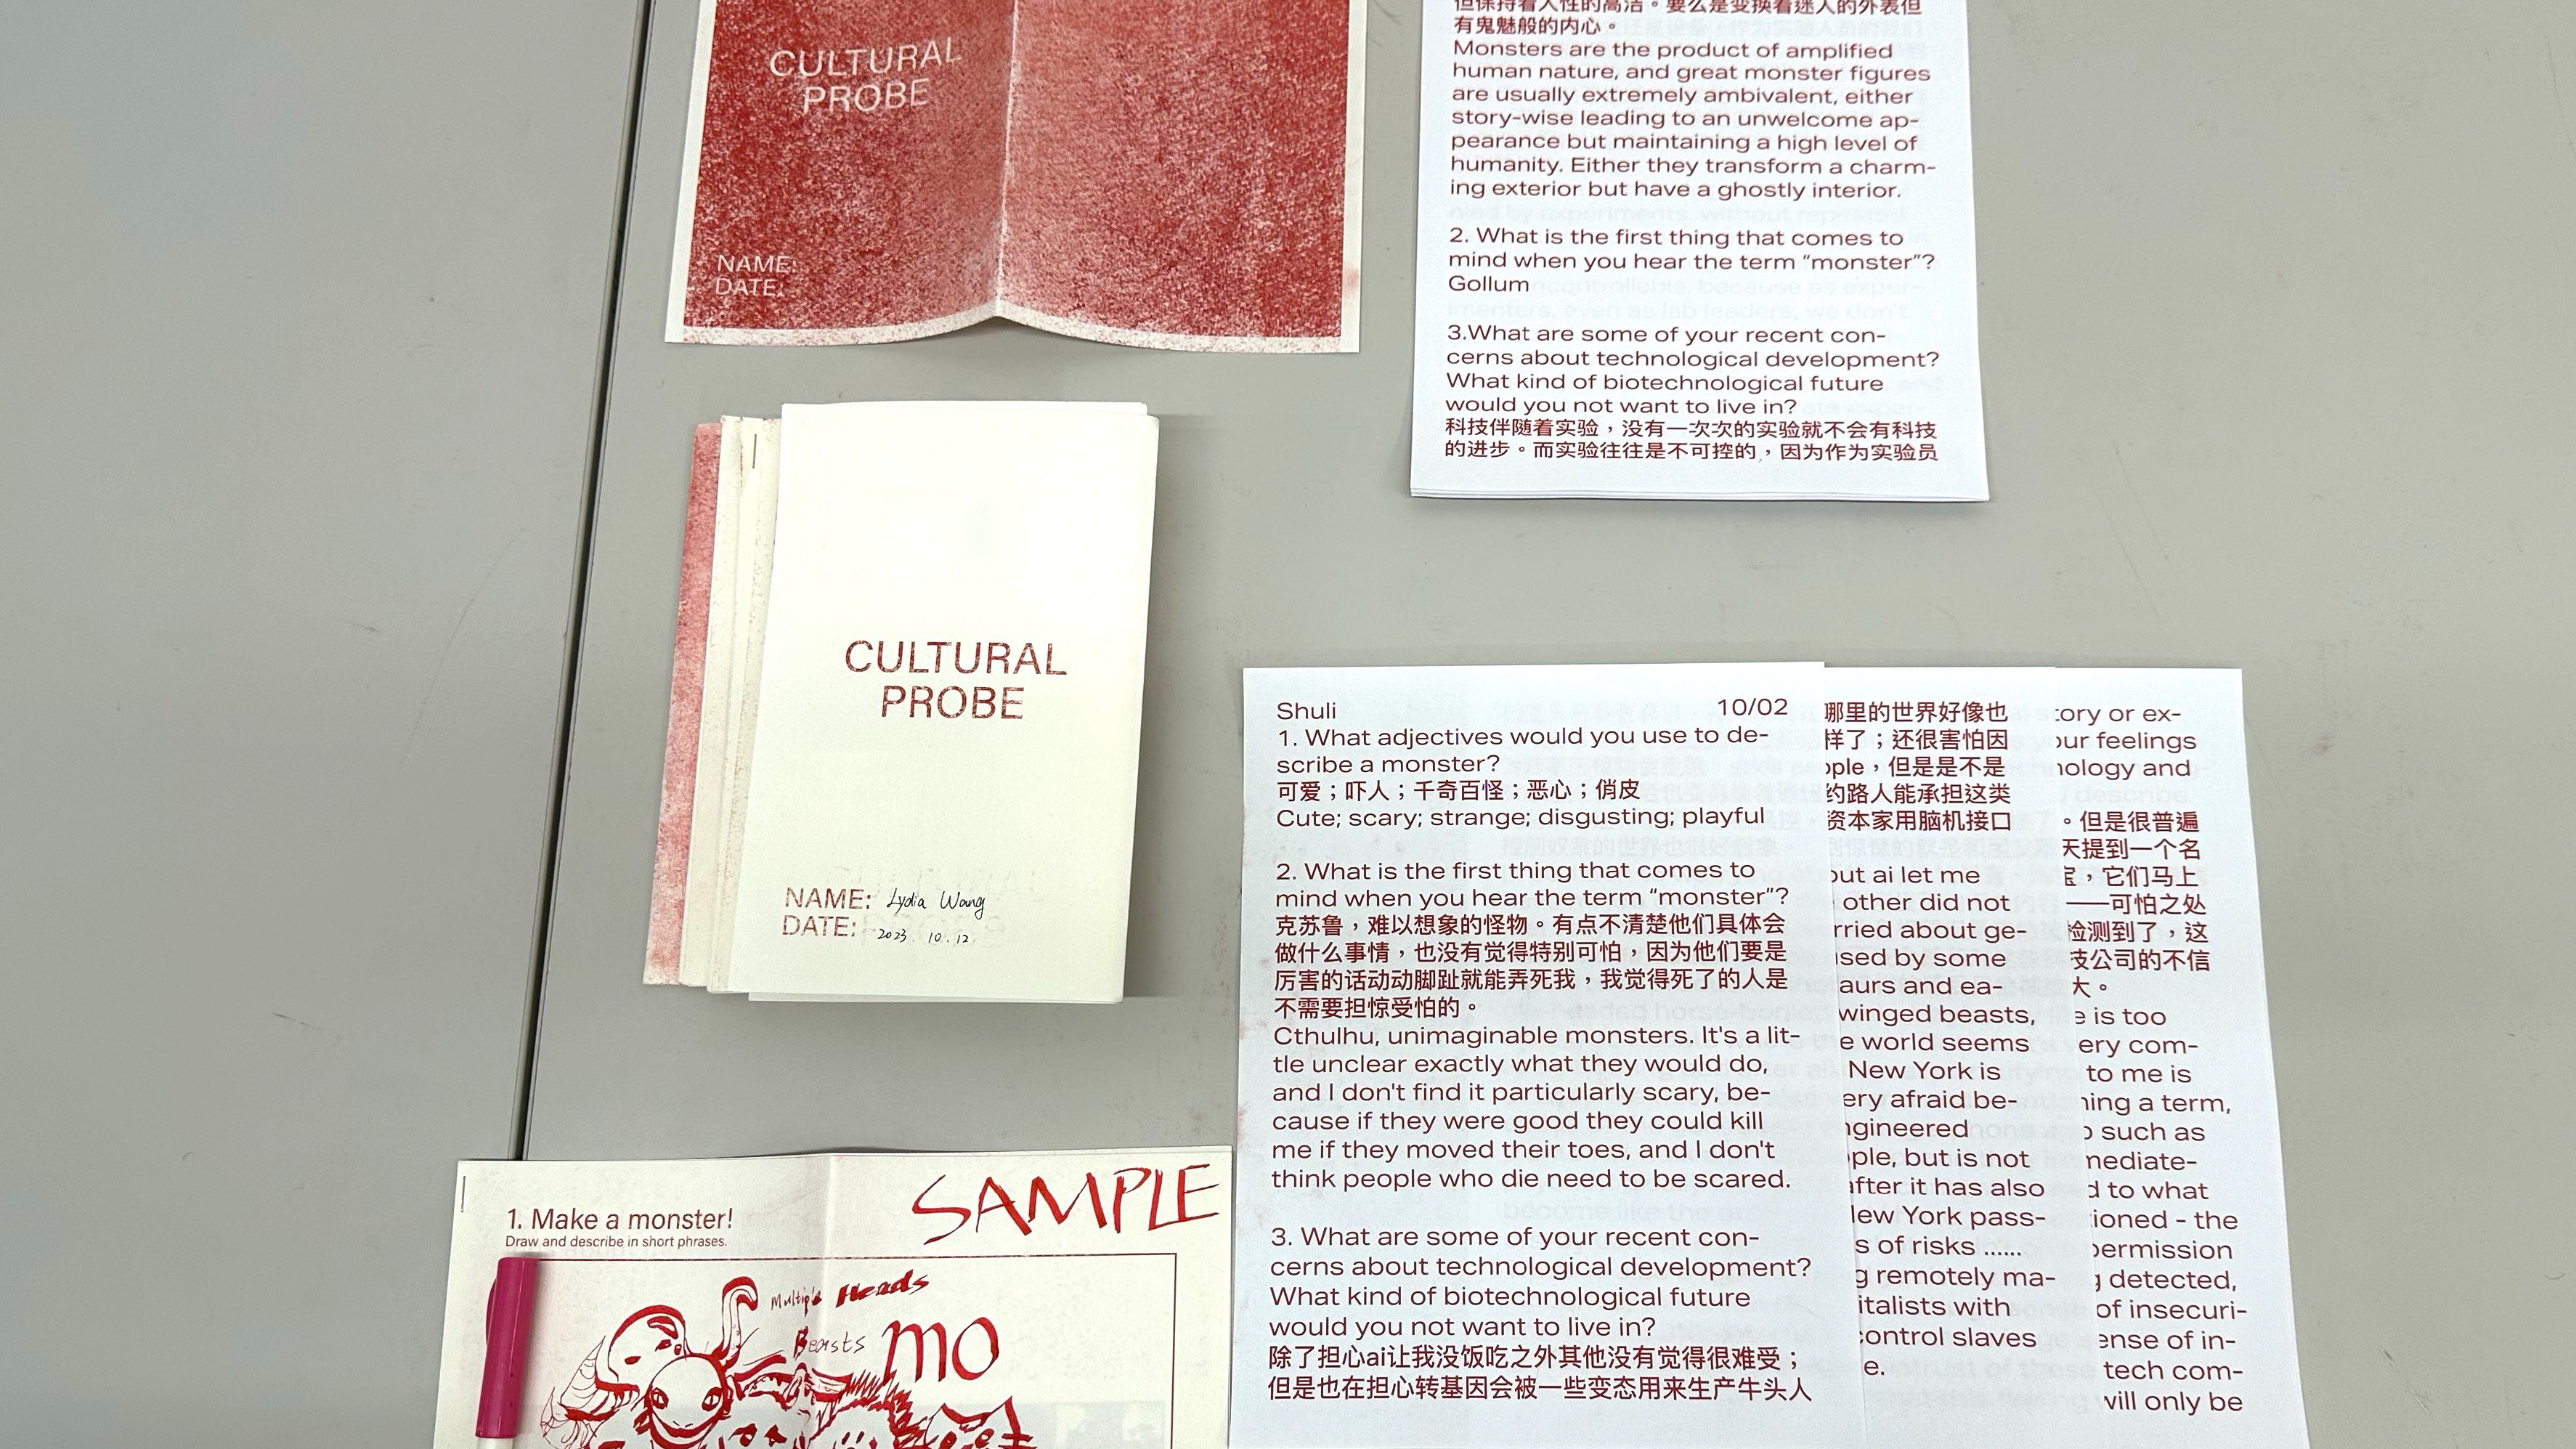 CULTURAL
PROBE
NAME:
DATE:
但保持着人性的高洁。要么是变换着迷人的外表但
有鬼魅般的内心。
Monsters are the product of amplified
human nature, and great monster figures
are usually extremely ambivalent, either
story-wise leading to an unwelcome ap-
pearance but maintaining a high level of
humanity. Either they transform a charm-
ing exterior but have a ghostly interior.
2. What is the first thing that comes to
mind when you hear the term “monster”?
Gollum
3.What are some of your recent con-
cerns about technological development?
What kind of biotechnological future
would you not want to live in?
科技伴随着实验，没有一次次的实验就不会有科技
的进步。而实验往往是不可控的，因为作为实验员
CULTURAL
PROBE
NAME: Lydia Wang
DATE: 2023. 10. 12
SAMPLE
1. Make a monster!
Draw and describe in short phrases.
Multiple Heads
Beasts
mo
Shuli 10/02
1. What adjectives would you use to de-
scribe a monster?
可爱；吓人；千奇百怪；恶心；俏皮
Cute; scary; strange; disgusting; playful
2. What is the first thing that comes to
mind when you hear the term “monster”?
克苏鲁，难以想象的怪物。有点不清楚他们具体会
做什么事情，也没有觉得特别可怕，因为他们要是
厉害的话动动脚趾就能弄死我，我觉得死了的人是
不需要担惊受怕的。
Cthulhu, unimaginable monsters. It's a lit-
tle unclear exactly what they would do,
and I don't find it particularly scary, be-
cause if they were good they could kill
me if they moved their toes, and I don't
think people who die need to be scared.
3. What are some of your recent con-
cerns about technological development?
What kind of biotechnological future
would you not want to live in?
除了担心ai让我没饭吃之外其他没有觉得很难受；
但是也在担心转基因会被一些变态用来生产牛头人
哪里的世界好像也
样了；还很害怕因
ople，但是是不是
约路人能承担这类
资本家用脑机接口
out ai let me
other did not
rried about ge-
used by some
aurs and ea-
winged beasts,
e world seems
New York is
ery afraid be-
ngineered
ople, but is not
after it has also
New York pass-
s of risks ......
g remotely ma-
italists with
control slaves
e.
tory or ex-
our feelings
nology and
。但是很普遍
天提到一个名
宝，它们马上
——可怕之处
检测到了，这
技公司的不信
大。
e is too
ery com-
to me is
ning a term,
o such as
mediate-
d to what
tioned - the
permission
g detected,
of insecuri-
ense of in-
tech com-
will only be